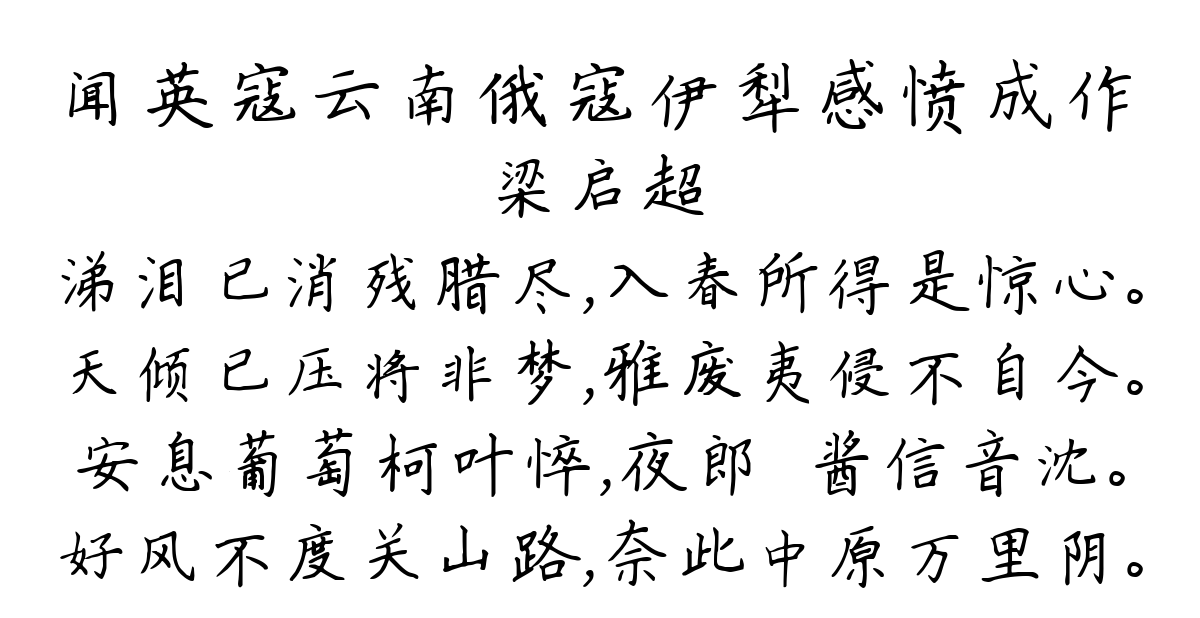 闻英寇云南俄寇伊犁感愤成作
梁启超
涕泪已消残腊尽,入春所得是惊心。
天倾已压将非梦,雅废夷侵不自今。
安息葡萄柯叶悴,夜郎 酱信音沈。
好风不度关山路,奈此中原万里阴。